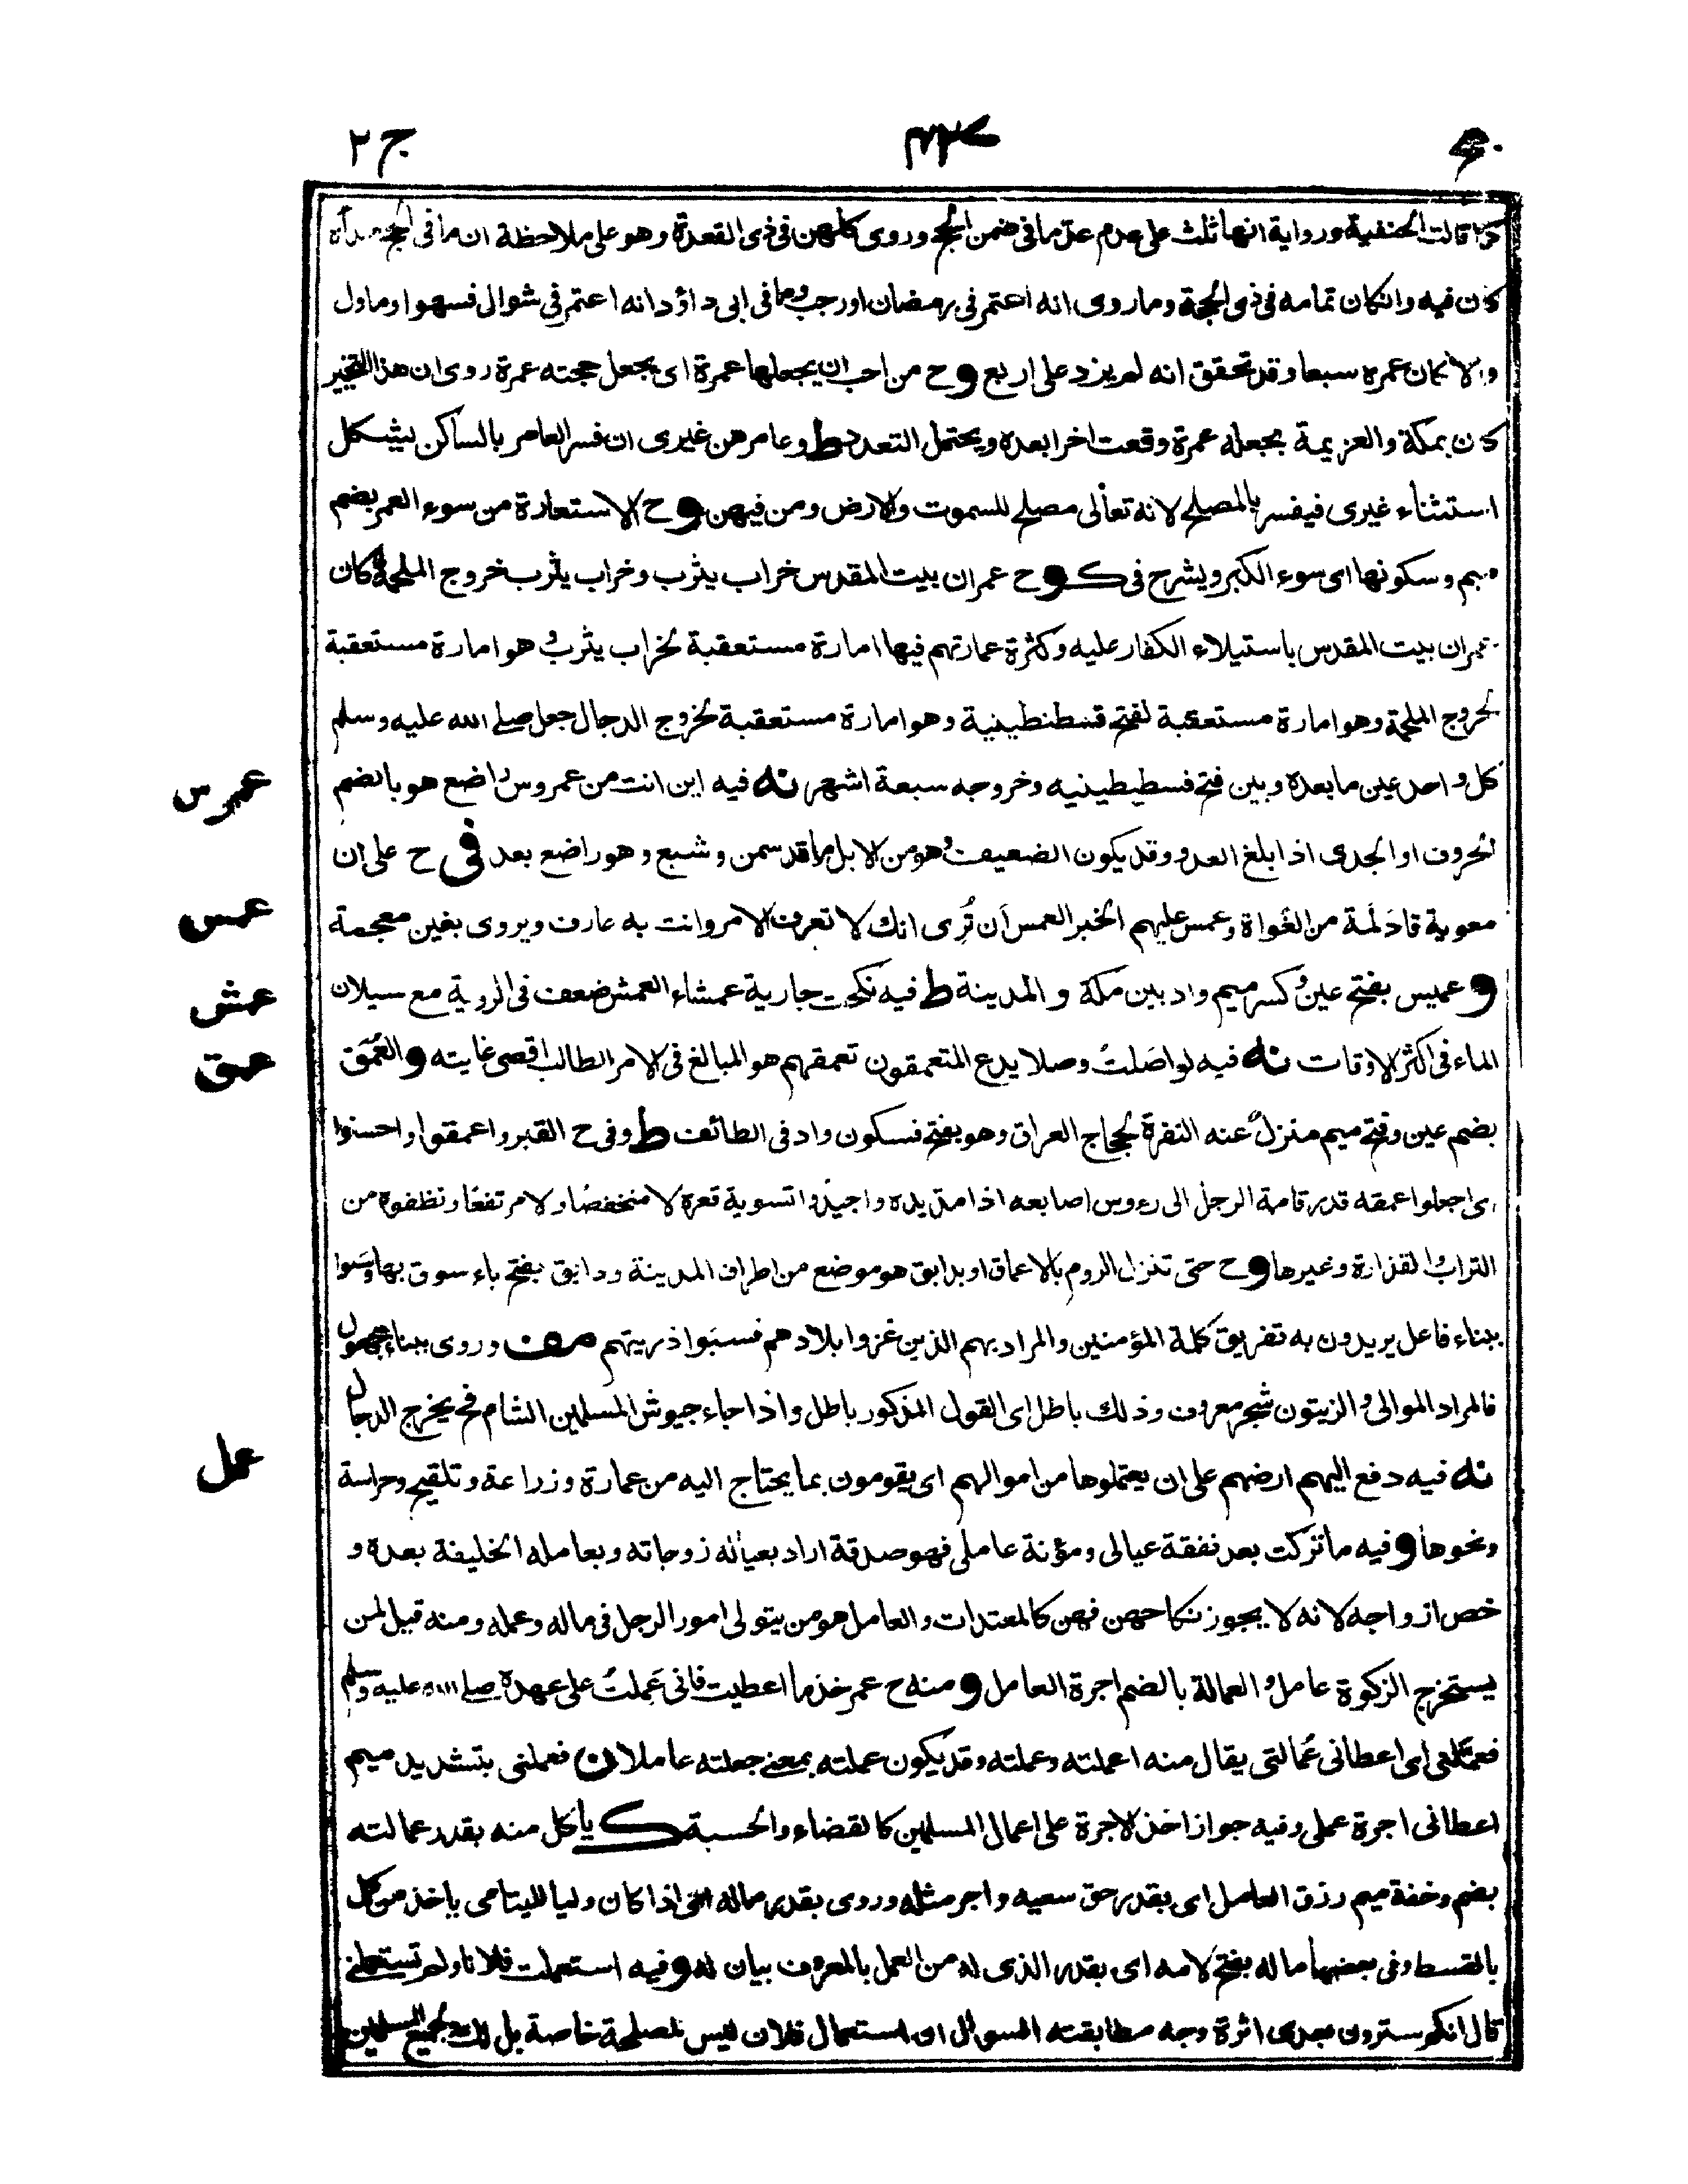 ج ٢
كما قالت الحنفية ورواية انها ثلث على عدم عد ما فى ضمن الحج وروى كلهن فى ذى القعدة وهو على ملاحظة ان ما فى الحج مبدأه
كان فيه وان كان تمامه فى ذى الحجة وما روى انه اعتمر فى رمضان اورجب وما فى ابى داؤد انه اعتمر فى شوال فسهو او ماول
والا لكان عمره سبعا وقد تحقق انه لم يزد على اربع و ح من احب ان يجعلها عمرة اى يجعل حجته عمرة روى ان هذا التخيير
كان بمكة والعزيمة بجعله عمرة وقعت اخرا بعده ويحتمل التعدد ط وعامرهن غيرى ان فسر العامر بالساكن ليشكل
استثناء غيرى فيفسر بالمصلح لانه تعالى مصلح للسموت والارض ومن فيهن و ح الاستعاذة من سوء العمر بضم
ميم وسكونها اى سوء الكبر ويشرح فى ك و ح عمران بيت المقدس خراب يثرب وخراب يثرب خروج الملحمة كان
عمران بيت المقدس باستيلاء الكفار عليه وكثرة عمارتهم فيها امارة مستعقبة لخراب يثرب وهو امارة مستعقبة
لخروج الملحمة وهو امارة مستعقبة لفتح قسطنطينية وهو امارة مستعقبة لخروج الدجال جعل صلى الله عليه وسلم
كل واحد عين ما بعده وبين فتح قسطيطينيه وخروجه سبعة اشهر نه فيه اين انت من عمروس راضع هو بالضم
عمرس
الخروف او الجدى اذا بلغ العدو وقد يكون الضعيف وهو من الابل ما قد سمن وشبع وهو راضع بعد فى ح على ان
معوية قاد لمة من الغواة وعمس عليهم الخبر العمس أن تُرى انك لا تعرف الامر وانت به عارف ويروى بغين معجمة
عمس
و عميس بفتح عين وكسر ميم واد بين مكة والمدينة ط فيه نكحت جارية عمشاء العمش ضعف فى الروية مع سيلان
عمش
الماء فى اكثر الاوقات نه فيه لو اصَلتُ وصلا يدع المتعمقون تعمقهم هو المبالغ فى الامر الطالب اقصى غايته و العُمَق
عمق
بضم عين وفتح ميم منزل عنه النقرة لحجاج العراق وهو بفتح فسكون واد فى الطائف ط وفى ح القبر واعمقوا واحسنوا
اى اجعلوا عمقه قدر قامة الرجل الى رءوس اصابعه اذا مد يده واجيدوا تسوية قعره لا منخفضا ولا مرتفعا ونظفوه من
التراب والقذارة وغيرها و ح حتى تنزل الروم بالاعماق او بدابق هو موضع من اطراف المدينة ودابق بفتح باء سوق بها وسبوا
ببناء فاعل يريدون به تفريق كلمة المؤمنين والمراد بهم الذين غزوا بلادهم فسبَوا ذريتهم مف وروى ببناء مجهول
فالمراد الموالى والزيتون شجر معروف وذلك باطل اى القول المذكور باطل واذا جاء جيوش المسلمين الشام فح يخرج الدجال
نه فيه دفع اليهم ارضهم على ان يعتملوها من اموالهم اى يقومون بما يحتاج اليه من عمارة وزراعة وتلقيح وحراسة
عمل
ونحوها و فيه ما تركت بعد نفقة عيالى ومؤنة عاملى فهو صدقة اراد بعياله زوجاته وبعامله الخليفة بعده و
خص ازواجه لانه لا يجوز نكاحهن فهن كالمعتدات والعامل هو من يتولى امور الرجل فى ماله وعمله ومنه قيل لمن
يستخرج الزكوة عامل والعمالة بالضم اجرة العامل و منه ح عمر خذ ما اعطيت فانى عَملتُ على عهده صلى الله عليه وسلم
فعمّلنى اى اعطانى عُمالتى يقال منه اعملته وعملته وقد يكون عملته بمعنى جعلته عاملا ن فعملنى بتشديد ميم
اعطانى اجرة عملى وفيه جواز اخذ الاجرة على اعمال المسلمين كالقضاء والحسبة ك ياكل منه بقدر عمالته
بضم وخفة ميم رزق العامل اى بقدر حق سعيه واجر مثله وروى بقدر ماله اى اذا كان وليا لليتامى ياخذ من كل
بالقسط وفى بعضها ما له بفتح لامه اى بقدر الذى له من العمل بالمعروف بيان له و فيه استعملت فلانا ولم تستعملنى
قال انكم سترون بعدى اثرة وجه مطابقته السوال ان استعمال فلان ليس لمصلحة خاصة بل لك ولجميع المسلمين